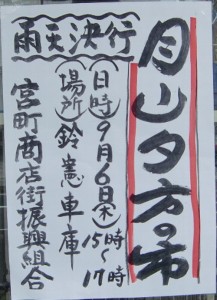 月山夕方の市
雨天決行
(日時)9月6日(木)15時〜17時
(場所)鈴憲車庫
宮町商店街振興組合